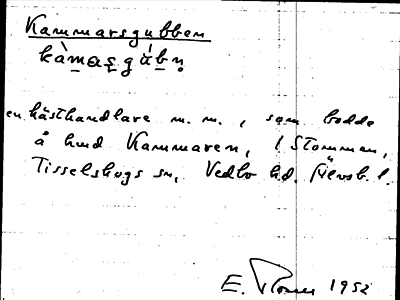 Kammarsgubben
kàmaşgúbn̥
en hästhandlare m. m., som bodde
å hmd Kammaren, i Stommen,
Tisselskogs sn, Vedbo hd. Älvsb. l.
E. 1952